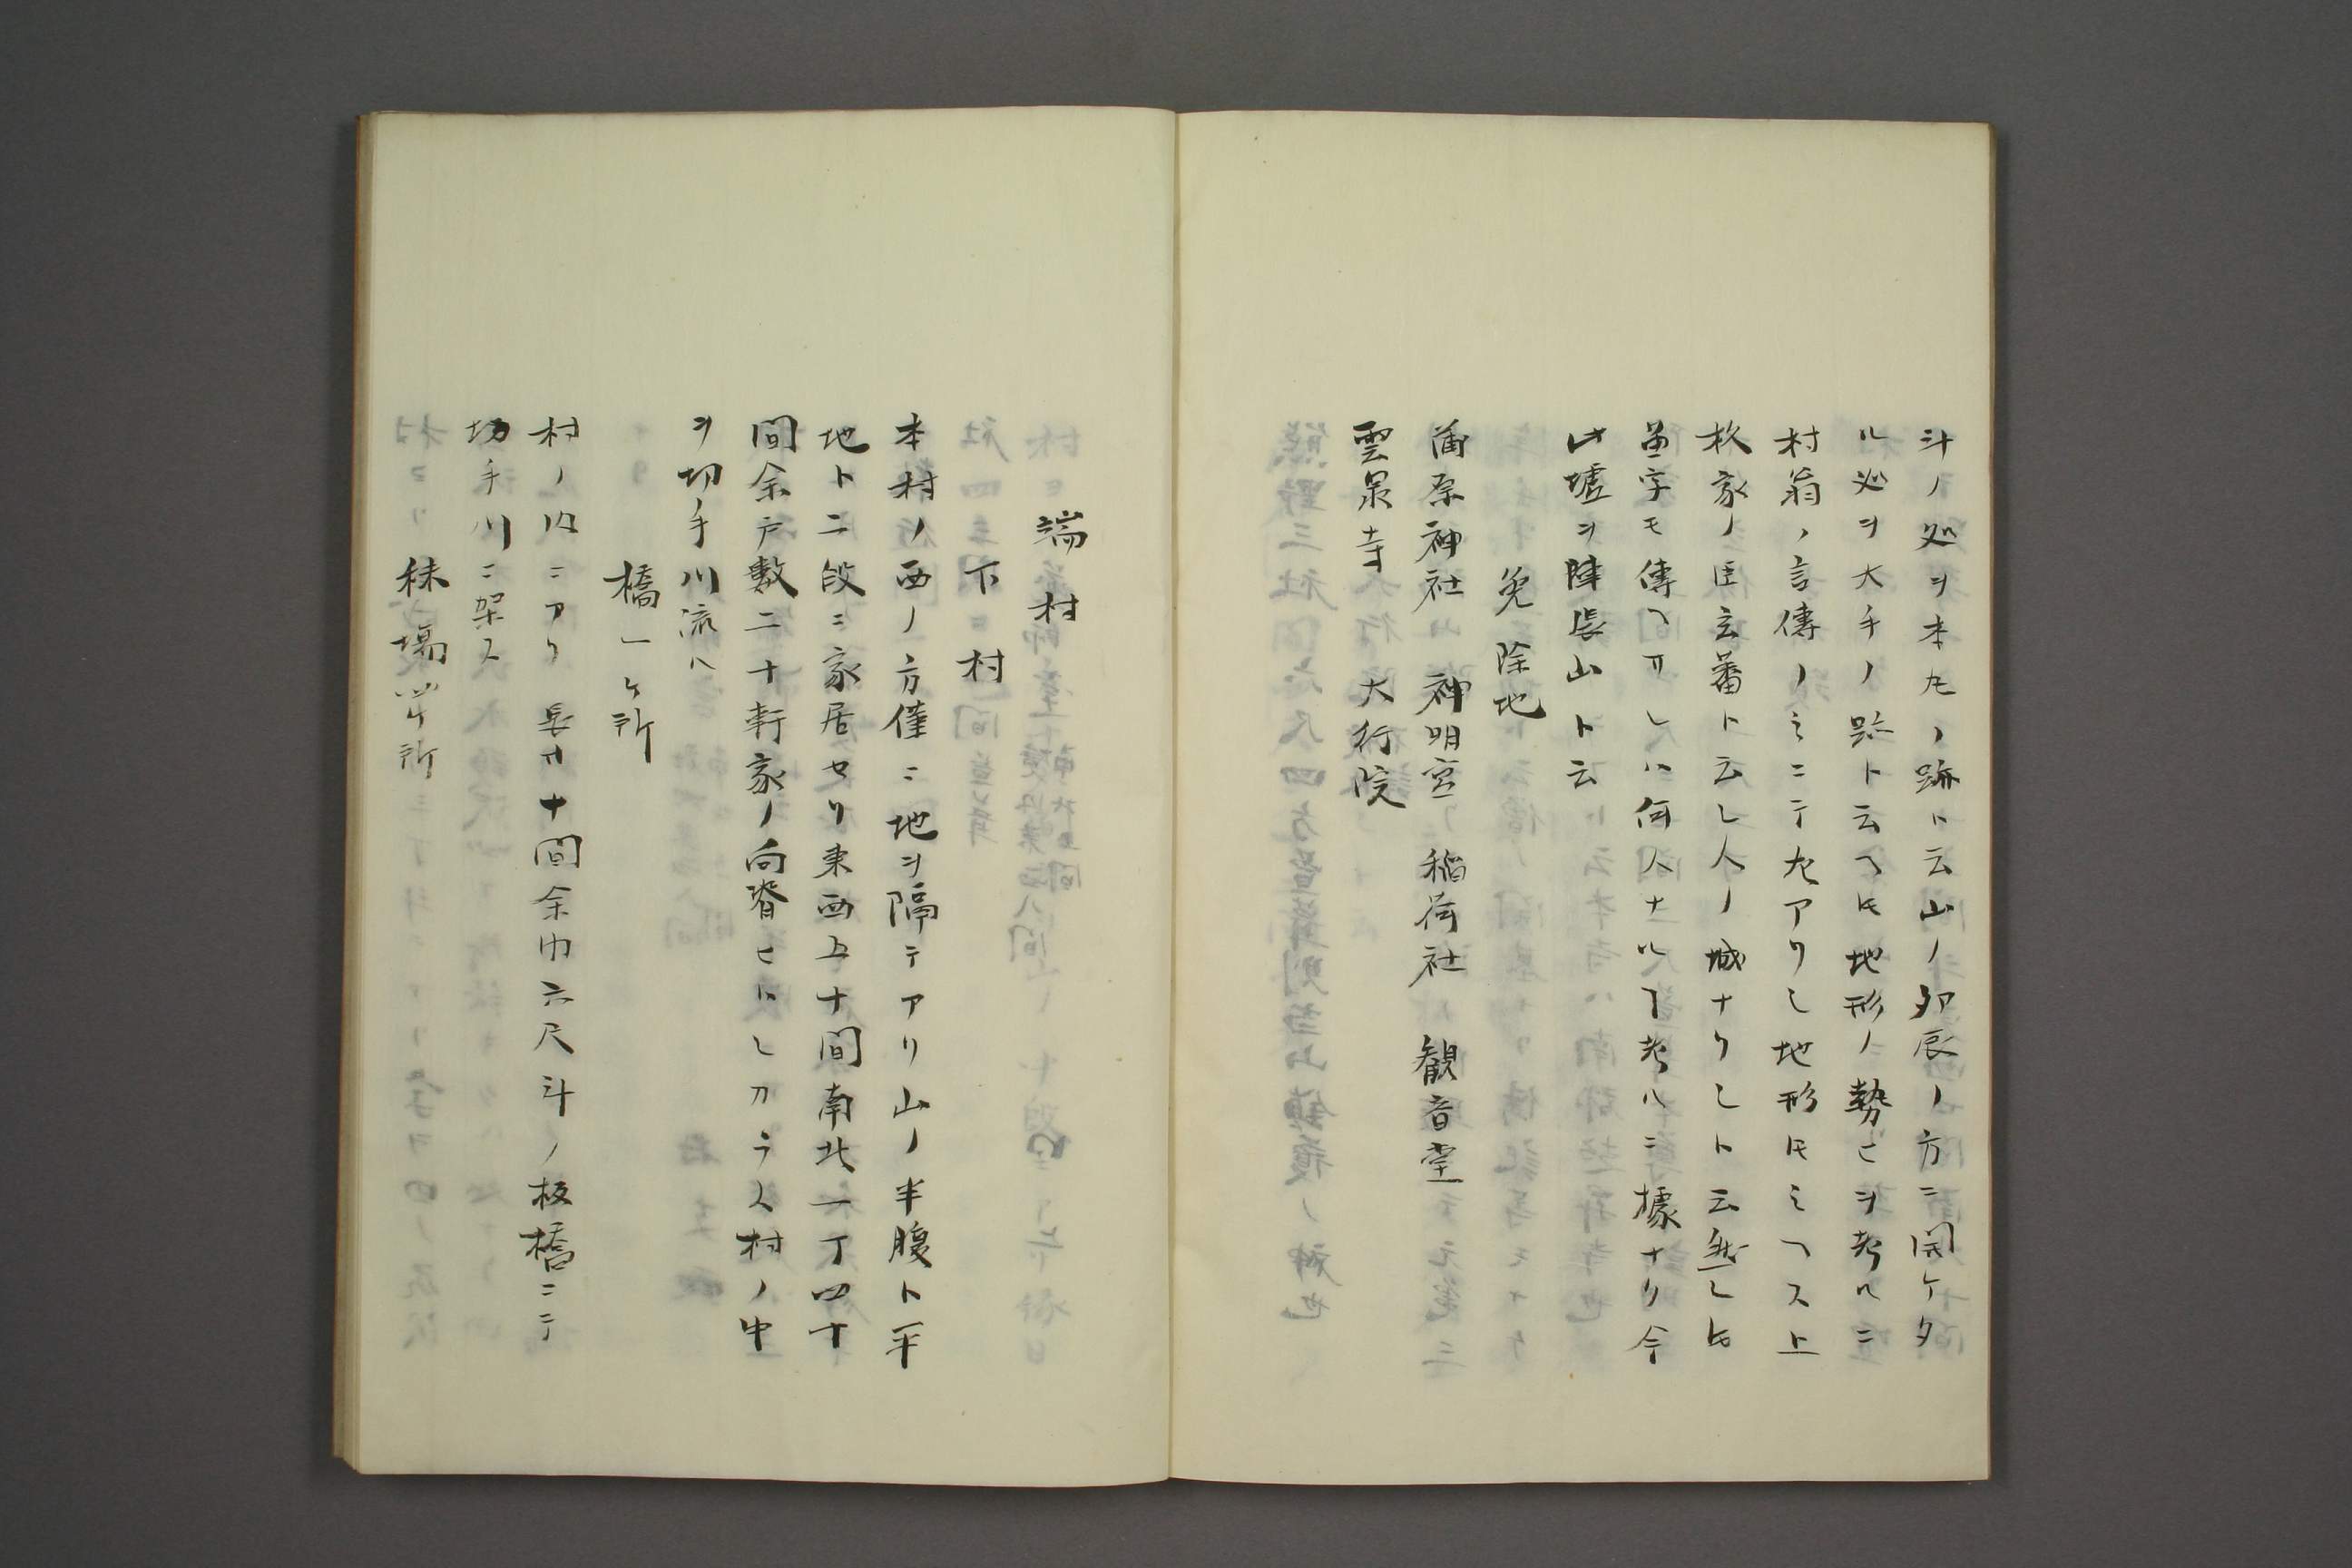 斗ノ処ヲ本丸ノ跡ト云山ノ卯辰ノ方ニ開ケタ
ル処ヲ大手ノ跡ト云ヘ𪜈地形ノ勢ヒヲ考ルニ
村翁ノ言傳ノミニテ九アリシ地形𪜈ミヘス上
杦家ノ臣玄蕃ト云シ人ノ城ナリシト云然レ𪜈
苗字モ傳ヘサレハ何人ナルヿ考ルニ據ナリ今
此墟ヲ陣張山ト云
免除地
蒲原神社 神明宮 稲荷社 観音堂
雲泉寺 大行院
端村
下村
本村ノ西ノ方僅ニ地ヲ隔テアリ山ノ半腹ト平
地ト二段ニ家居セリ東西五十間南北一丁四十
間余戸數二十軒家ノ向背ヒトシカラス村ノ中
ヲ切手川流ル
橋一ケ所
村ノ内ニアリ長サ十間余巾六尺斗ノ板橋ニテ
切手川ニ架ス
秣場 所